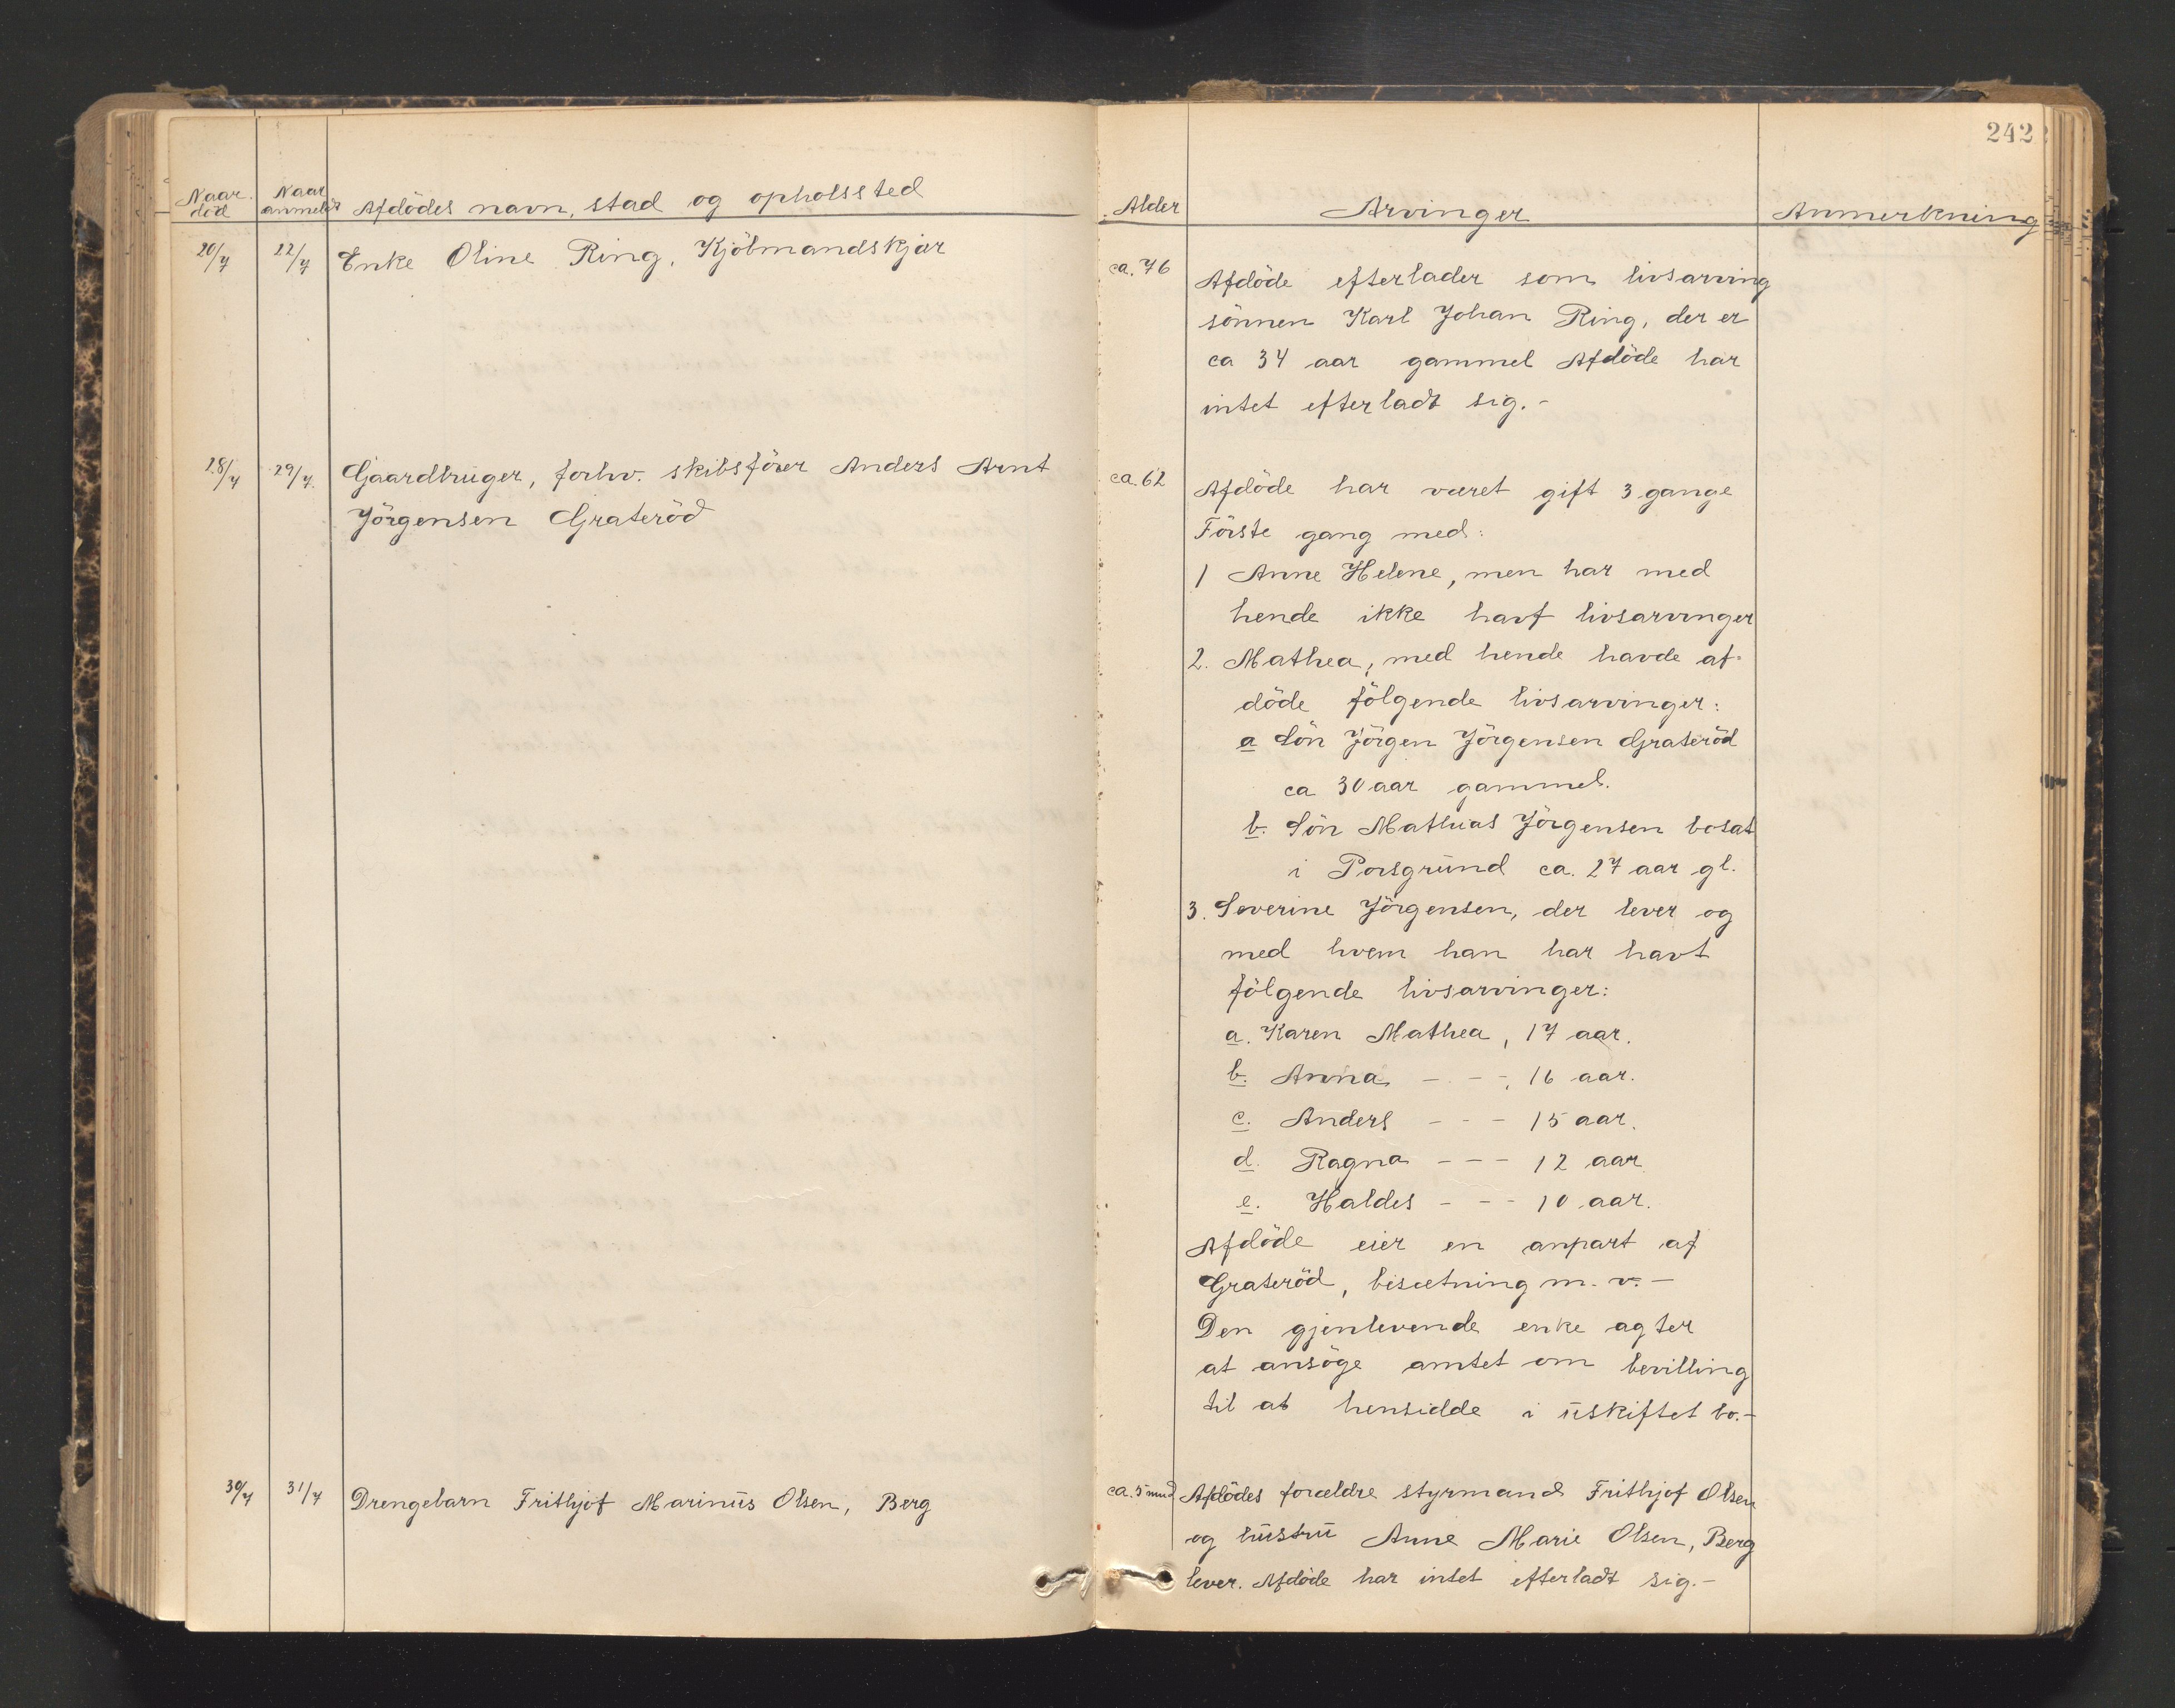 242
Naar död
Naar anmeldt
Afdödes navn, stad og opholssted
Alder
Arvinger
Anmerkning
20/7 22/7 Enke Oline Ring, Kjöbmandskjær
ca. 76
Afdöde efterlader som livsarving
sönnen Karl Johan Ring, der er
ca 34 aar gammel Afdöde har
intet efterladt sig.-
28/7 29/7. Gaardbruger, forhv. skibsförer Anders Arnt
Jörgensen Grateröd
ca. 62
Afdöde har været gift 3 gange
Förste gang med:
1 Anne Helene, men har med
hende ikke havt livsarvinger
2. Mathea, med hende havde af-
döde fölgende livsarvinger:
a Sön Jörgen Jörgensen Grateröd
ca 30 aar gammel.
b. Sön Mathias Jörgensen bosat
i Porsgrund ca. 27 aar gl.
3. Severine Jörgensen, der lever og
med hvem han har havt
fölgende livsarvinger:
a. Karen Mathea, 17 aar.
b. Anna - - -, 16 aar.
c. Anders - - - 15 aar.
d. Ragna - - - 12 aar
e. Haldis - - - 10 aar.
Afdöde eier en anpart af
Grateröd, besætning m. v.-
Den gjenlevende enke agter
at ansöge amtet om bevilling
til at hensidde i uskiftet bo.-
30/7 31/7 Drengebarn Frithjof Marinus Olsen, Berg
ca. 5 mnd
Afdödes forældre styrmand Frithjof Olsen
og hustru Anne Marie Olsen, Berg
lever. Afdöde har intet efterladt sig.-